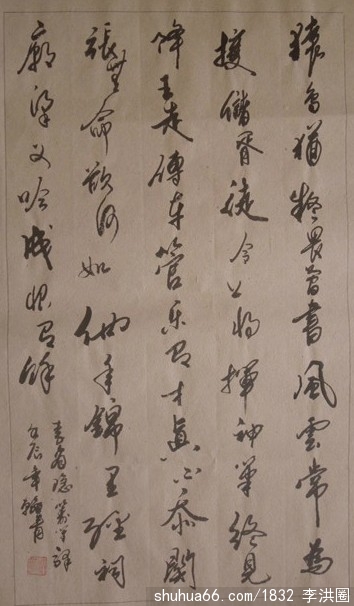 猿鳥猶疑畏簡書風雲常為
護儲胥徒令上將揮神筆終見
降王走傳車管樂有才真不忝關
張無命欲何如他年錦里經祠
廟梁父吟成恨有餘
李商隱籌筆驛
壬辰年
shuhua66.com/1832 李洪圈